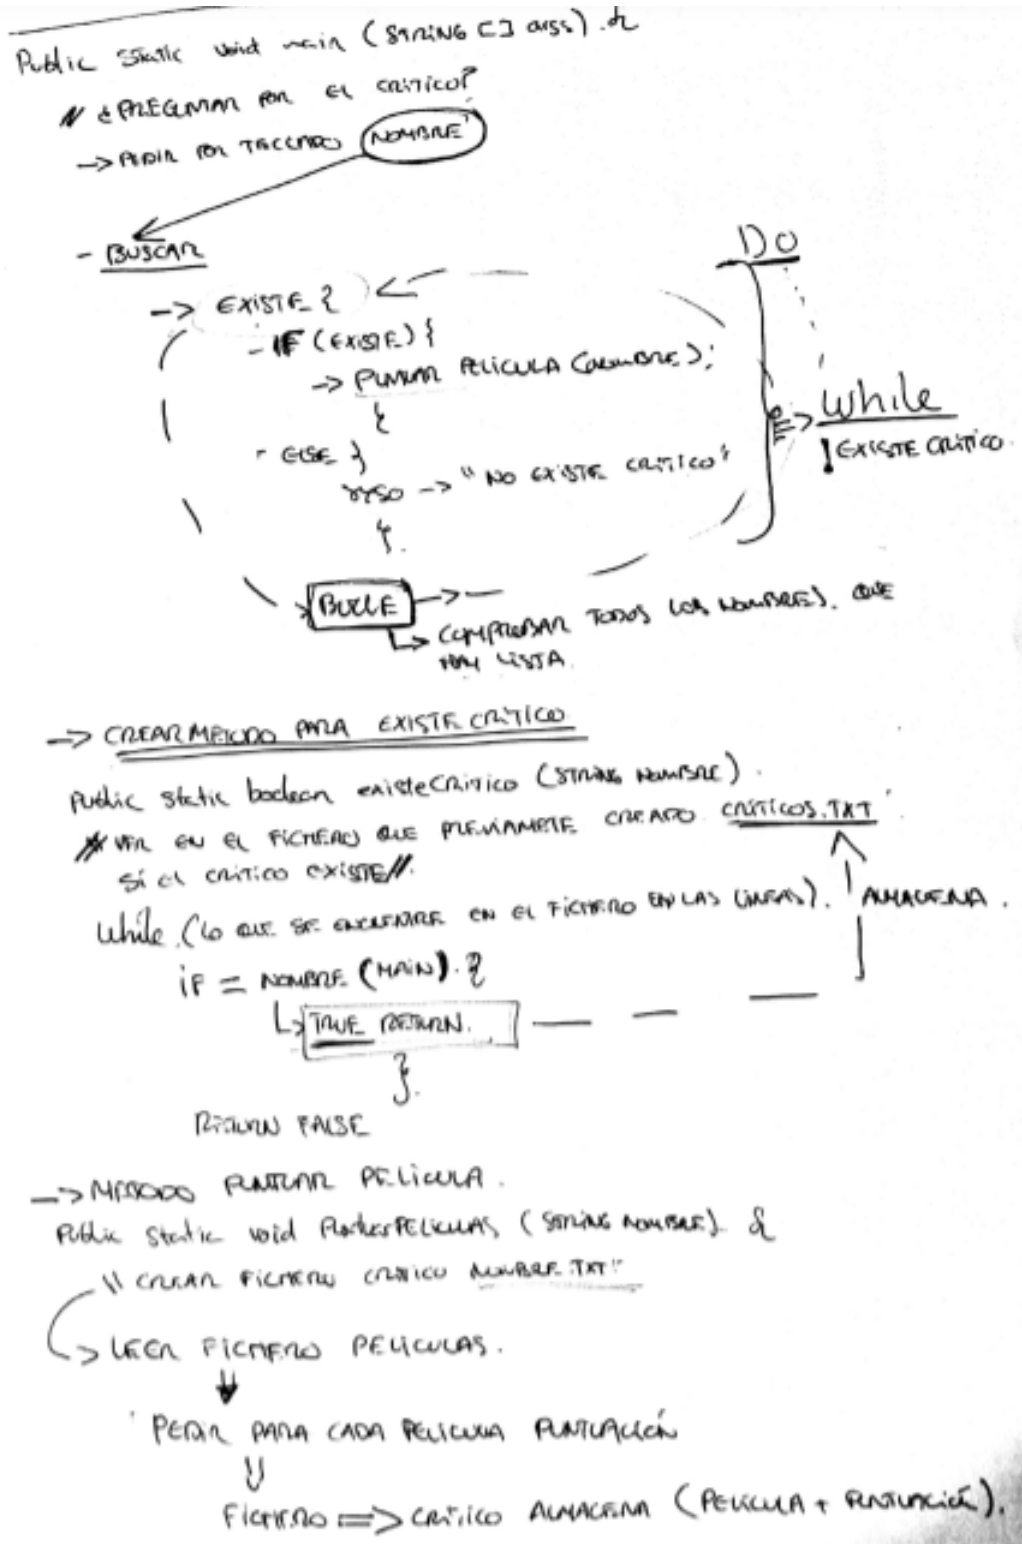 Public static void main (STRING [] args) {
// ¿PREGUNTAR POR EL CRITICO?
-> PEDIR POR TECLADO NOMBRE
- BUSCAR
DO
-> EXISTE {
- IF (EXISTE) {
-> PUNTUAR PELÍCULA (NOMBRE);
}
while
! EXISTE CRITICO.
- ELSE }
SYSO -> "NO EXISTE CRITICO"
}.
BUCLE ->
-> COMPROBAR TODOS LOS NOMBRES. QUE
HAY LISTA.
-> CREAR METODO PARA EXISTE CRÍTICO
Public static boolean existeCRITICO (STRING NOMBRE).
// VER EN EL FICHERO QUE PREVIAMETE CREADO CRITICOS.TXT
SI EL CRITICO EXISTE//.
ALMACENA.
While (LO QUE SE ENCUENTRE EN EL FICHERO EN LAS LINEAS).
IF = NOMBRE (MAIN). {
TRUE RETURN.
}.
RETURN FALSE
-> METODO PUNTUAR PELICULA.
Public static void PELICULAS (STRING NOMBRE). {
\\ CREAR FICHERO CRITICO NOMBRE.TXT"
-> LEER FICHERO PELICULAS.
PEDIR PARA CADA PELICULA PUNTUACIÓN
FICHERO => CRITICO ALMACENA (PELICULA + PUNTUACIÓN).